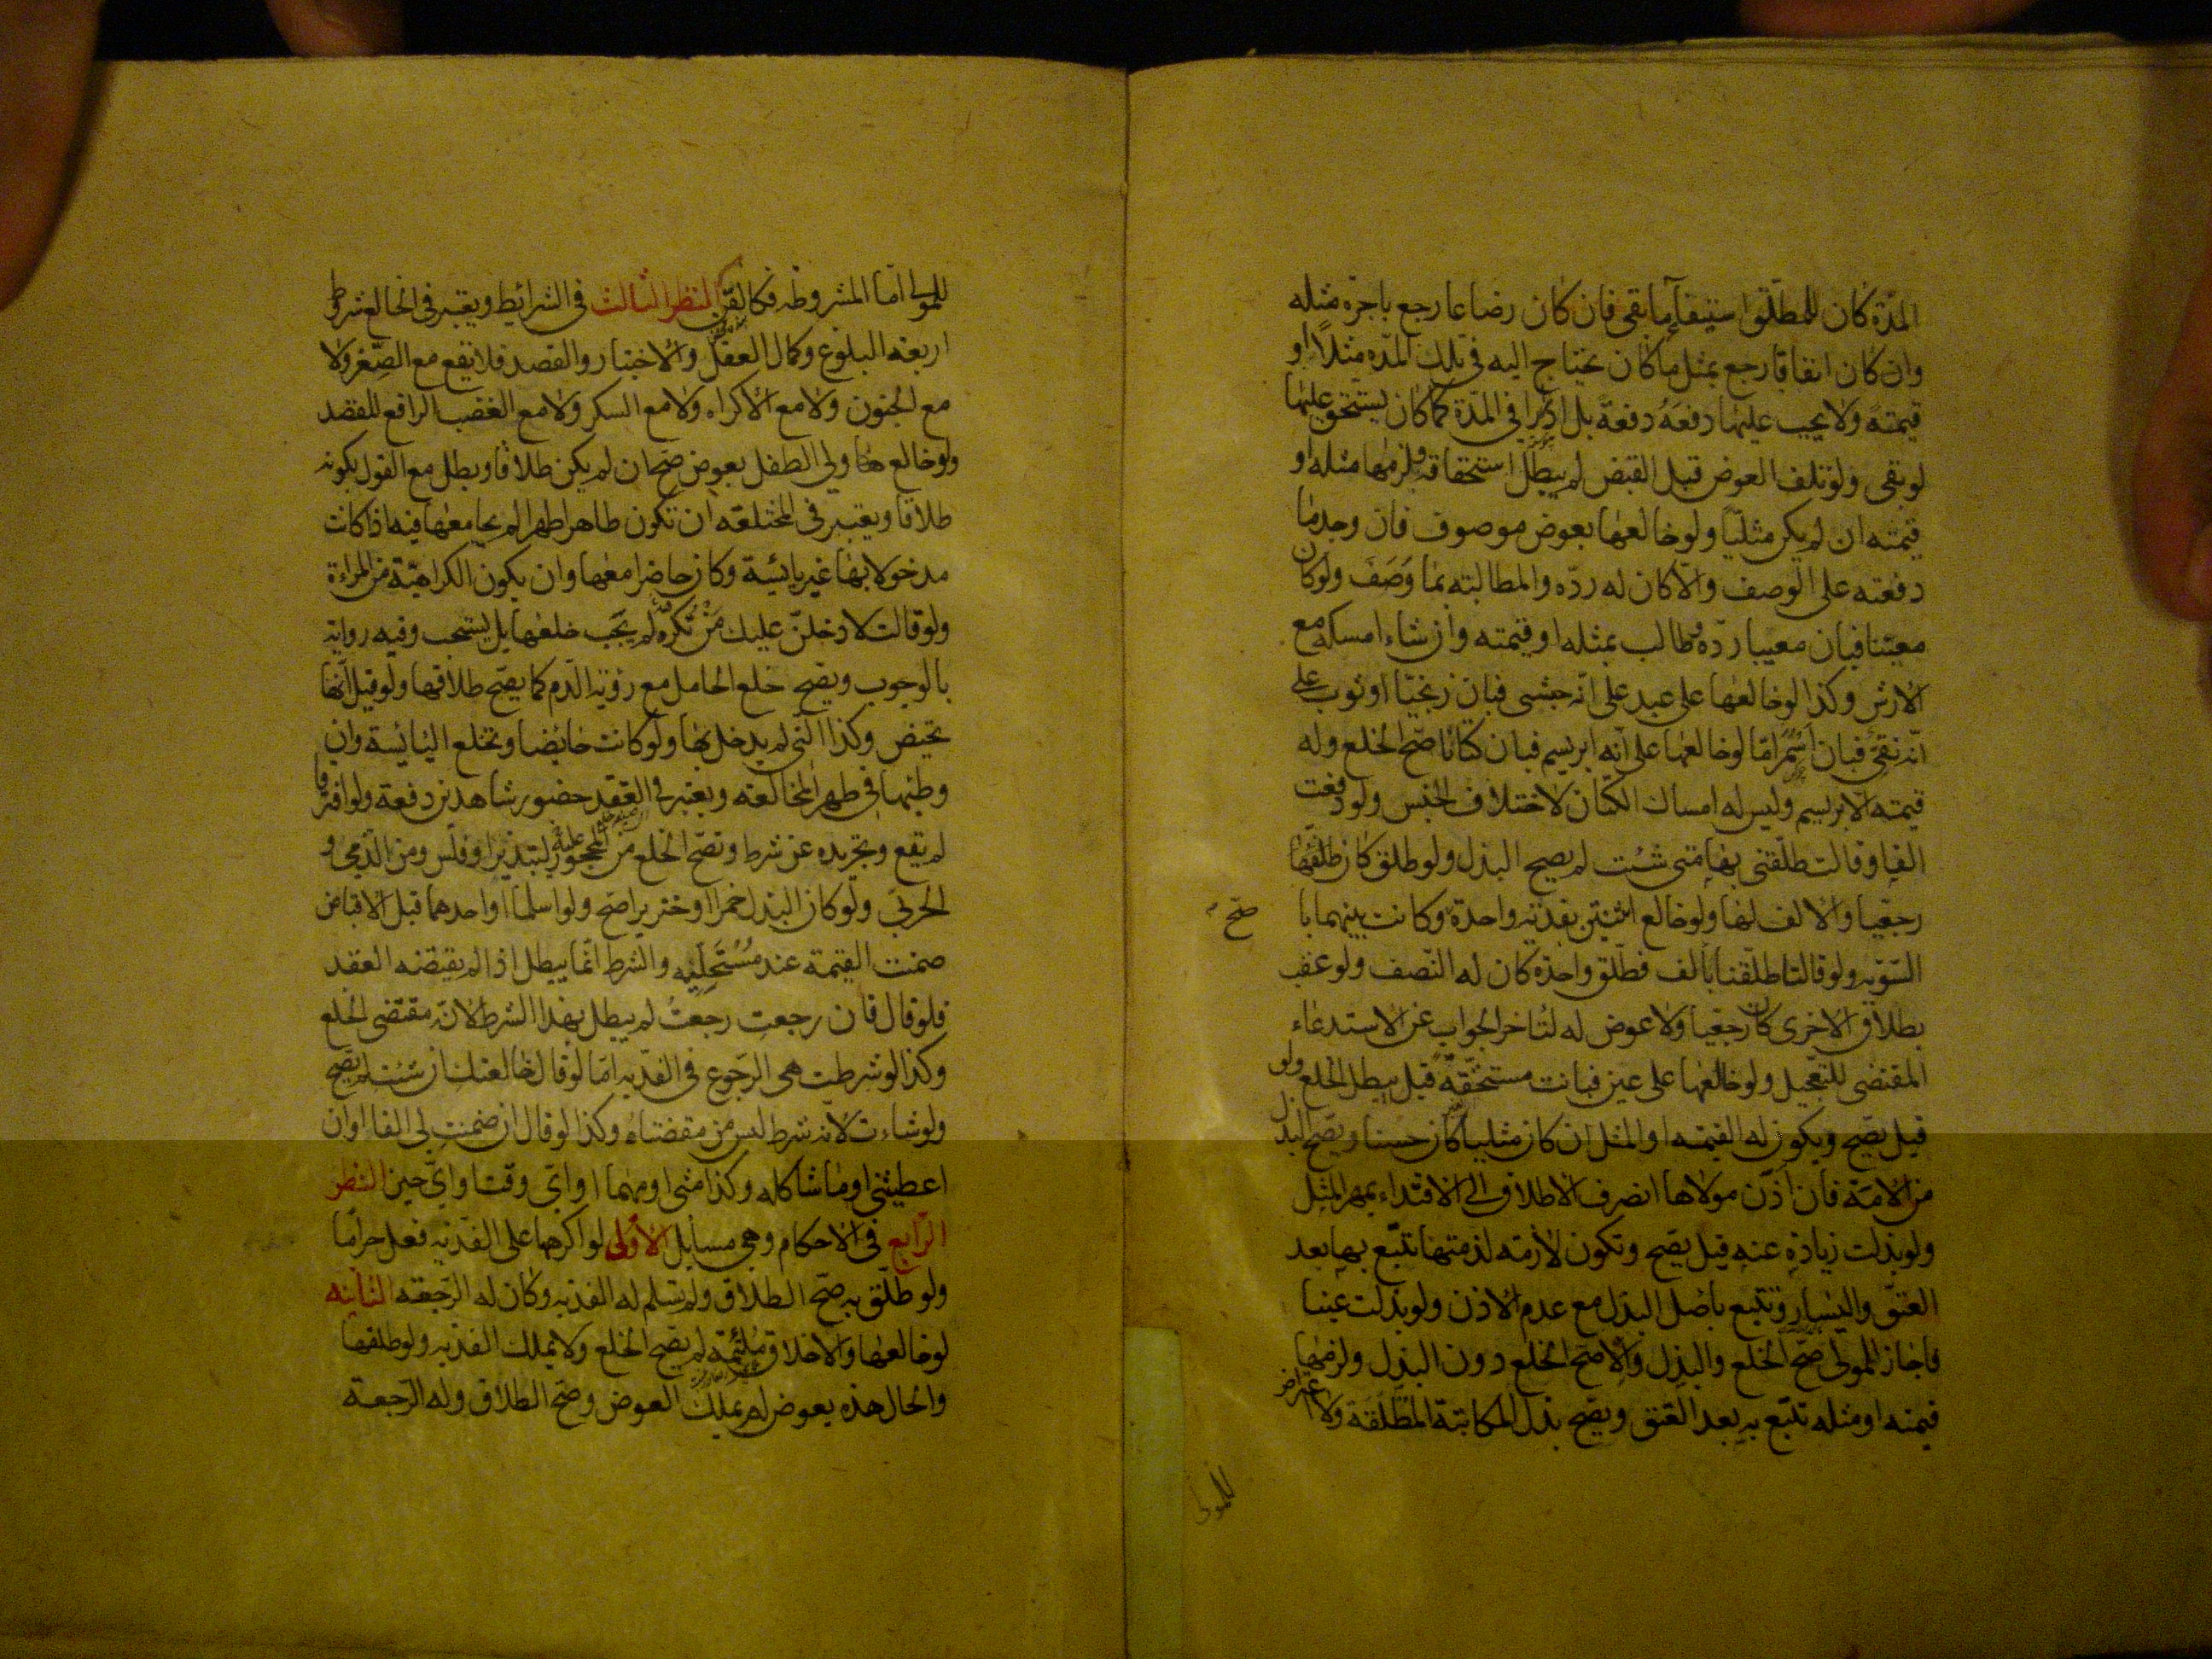 المدّة كان للمطلّق استيفآء ما بقى فان كان رضاعا رجع باجرة مثله
وان كان انفاقا رجع بمثل ما كان يحتاج اليه فى تلك المدّه مثلًا او
قيمتهَ ولا يجب عليها دفعهُ دفعةً بل ادرارا فى المدّة كما كان يستحق عليها
لو بقى ولو تلف العوض قبل القبض لم يبطل استحقاقه ولزمها مثله او
قيمته ان لم يكن مثليّا ولو خالعها بعوض موصوف فان وجد ما
دفعته على الوصف والّا كان له ردّه والمطالبته بما وَصَفَ ولو كان
معيّنا فبان معيبا ردّه وطالب بمثله او قيمته وان شاء امسكه مع
الارش وكذا لو خالعها على عبد على انّه حبشى فبان زنجيّا او ثوب على
انّه نقىّ فبان اسمر امّا لو خالعها على انّه ابريسم فبان كتّانا صحّ الخلع وله
قيمته الابريسم وليس له امساك الكتّان لاختلاف الجنس ولو دفعت
الفا وقالت طلّقنى بها متى شئت لم يصح البذل ولو طلق كان طلاقها
رجعيا والالف لها ولو خالع اثنتين بفديه واحدة وكانت بينهما با
صحّ
السّويّه ولو قالتا طلّقنا بألف فطلّق واحدة كان له النّصف ولو عقب
بطلاق الاخرى كان رجعيا ولا عوض له لتاخر الجواب عن الاستدعاء
المقتضى للتعجيل ولو خالعها على عين فبانت مستحقّه قيل يبطل الخلع ولو
قيل يصّح ويكون له القيمه او المثل ان كان مثليا كان حسنا ويصّح البذل
من الامة فان اذن مولاها انصرف الاطلاق الى الافتداء بمهر المثل
ولو بذلت زيادة عنه قيل يصّح وتكون لازمه لذمتها تتبّع بها بعد
العتق واليسار وتتبع باصل البذل مع عدم الاذن ولو بذلت عينا
فاجاز المولى صّح الخلع والبذل والّا صّح الخلع دون البذل ولزمها
قيمته او مثله تتبّع به بعد العتق ويصّح بذل المكاتبة المطلقة ولا اعتراض
للمولى
للمولى امّا المشروطه فكالقنّ النظر الثالث فى الشرائط ويعتبر فى الخالع شروط
اربعة البلوغ وكمال العقل والاختيار والقصد فلا يقع مع الصّغر ولا
مع الجنون ولا مع الاكراه ولا مع السكر ولا مع الغضب الرافع للقصد
ولو خالع ولى الطفل بعوض صحّ ان لم يكن طلاقا وبطل مع القول بكونه
طلاقا ويعتبر فى المختلعه ان تكون طاهرا طهرا لم يجامعها فيه اذا كانت
مدخولا بها غير يائسة وكان حاضرا معها وان يكون الكراهيّة من المراءة
ولو قالت لادخلنّ عليك مَنْ تكره لم يجب خلعها بل يستحب وفيه رواية
بالوجوب ويصّح خلع الحامل مع رؤيه الدّم كما يصّح طلاقها ولو قيل انّها
تحيض وكذا الّتى لم يدخل بها ولو كانت حائضا وتخلع اليائسة وان
وطئها فى طهر المخالعه ويعتبر فى العقد حضور شاهدين دفعة ولو افترقا
لم يقع وتجريده عن شرط ويصّح الخلع من المحجور عليه لتبذير او فلس ومن الذّمى و
الحربىّ ولو كان البذل خمرا او خنزيرا صّح ولو اسلما او احدهما قبل الاقباض
ضمنت القيمة عند مُسْتَحِلّيه والشرط انّما يبطل اذا لم يقتضه العقد
فلو قال فان رجعتِ رجعتُ لم يبطل بهذا الشرط لانّه مقتضى الخلع
وكذا لو شرطت هى الرّجوع فى الفديه امّا لو قال خالعتك ان شئت لم يصّح
ولو شاءت لانه شرط ليس من مقتضاه وكذا لو قال ان ضمنت لى الفا او ان
اعطيتنى او ما شاكله وكذا متى او مهما او اىّ وقت او اىّ حين النظر
الرّابع فى الاحكام وهى مسايل الاولى لو اكرهها على الفديه فعل حرامًا
ولو طلّق به صّح الطلاق ولم يسلم له الفديه وكان له الرّجعة الثانيه
لو خالعها والاخلاق ملتئمة لم يصّح الخلع ولا يملك الفديه ولو طلقها
والحال هذه بعوض لم يملك العوض وصّح الطلاق وله الرّجعة